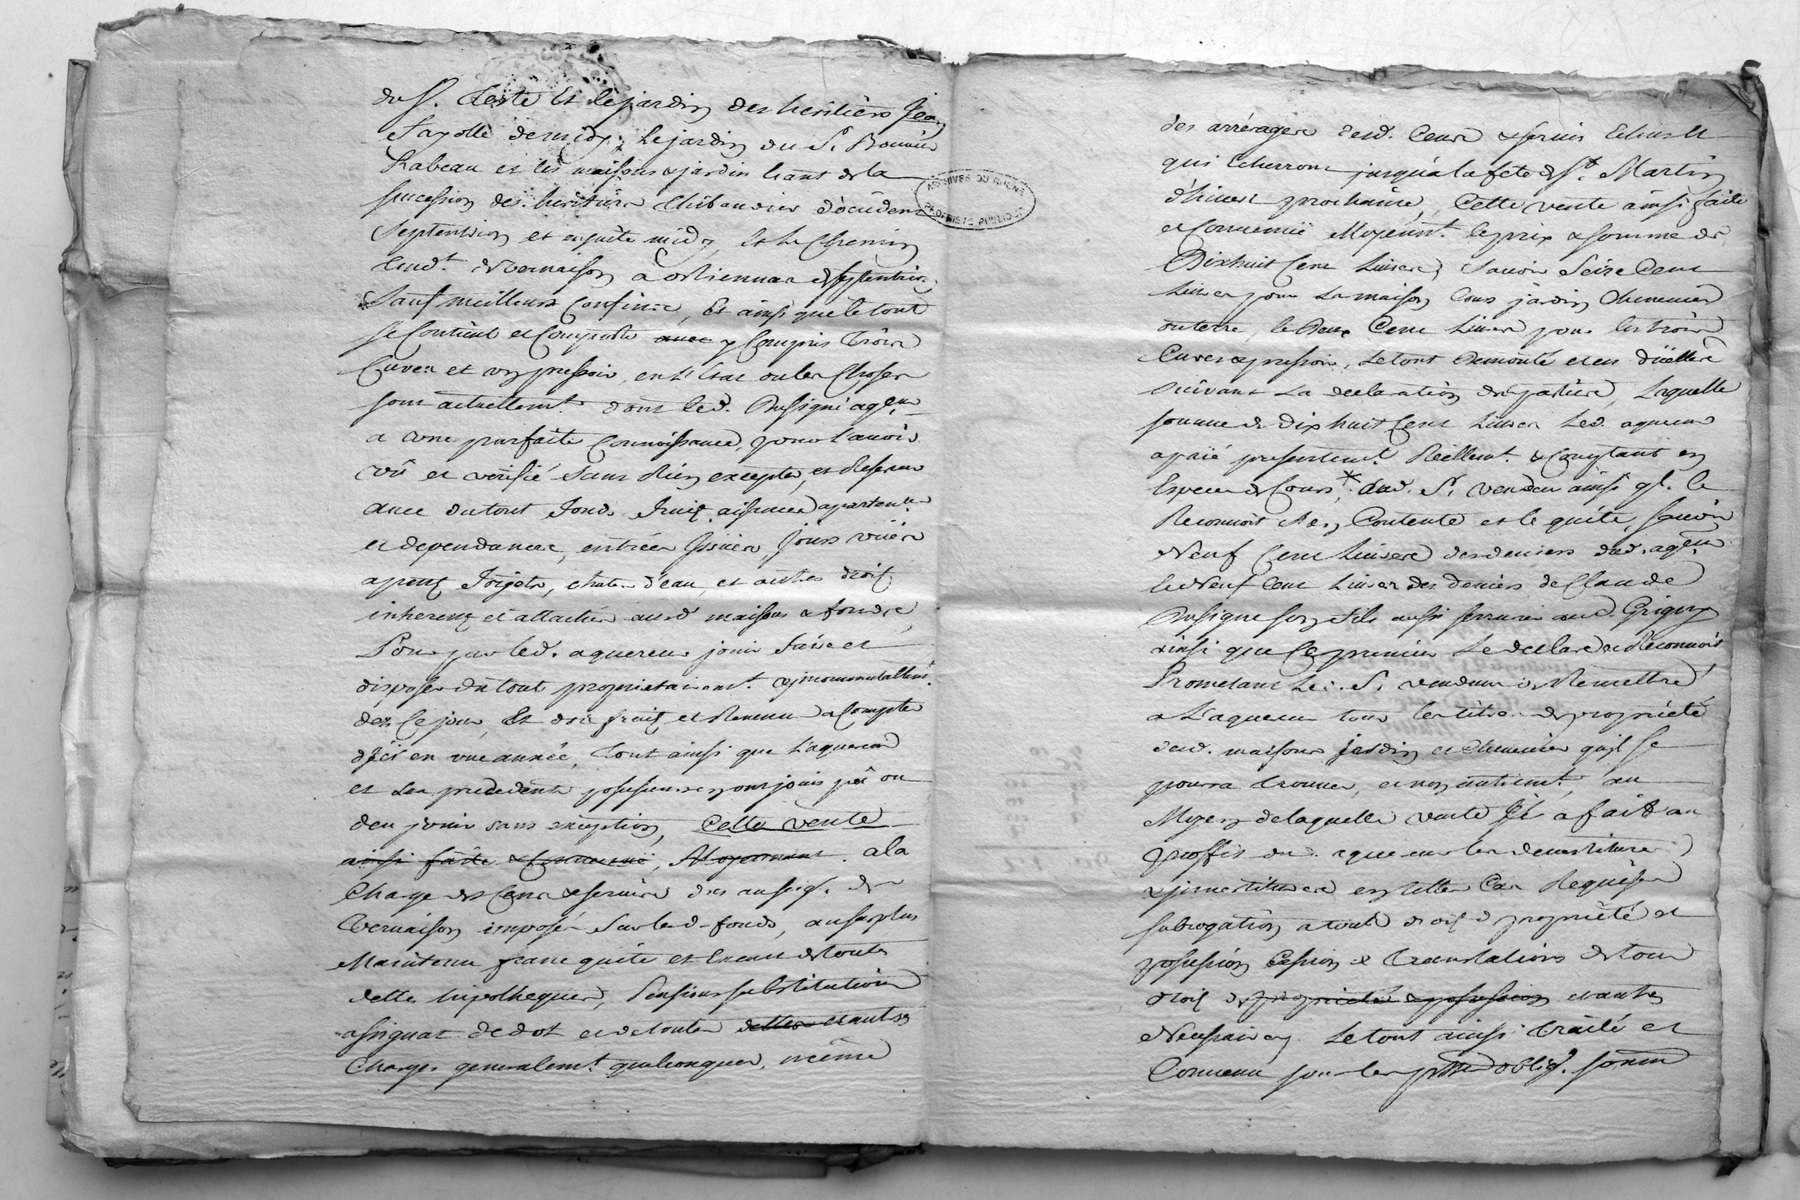 du S. Teste et le jardin des heritiers Jean
Fayolle de midy, le jardin du S. Bouvier
Rabeau et les maisons & jardin étant de la
succession des heritiers d'occident
Septentrion et ensuite midy, et le chemin
tend.t de Vernaison a de septentrion
sauf meilleurs confins, Et ainsi que le tout
se Contient et Comporte avec y Compris Trois
Cuves et un pressoir, en l'état ou les Choses
sont actuellem.t dont led. agen.
a une parfaite Connoissance, pour l'avoir
vû et verifié sans Rien excepter, et Reserver
avec du tout fonds fruits aisances apartenan.
et dependances, entrées Issües, Jours vües
apens forjets, chute d'eau, et autres droits
inherens et attachés aud. maisons & fonds,
Pour par led. aquereur jouir faire et
disposer du tout proprietairem.t & incommutablem.
dez Ce jour, Et des fruits et Revenu a Compter
d'jci en une année, Tout ainsi que l'aquereur
et Les precedents possesseurs en ont joüis pû ou
deu jouir sans exception, Cette vente
ainsi faite & Convenuë, Moyennant. a la
Charge des Cens & servis dus au seig. de
Vernaison imposés Sur led. fonds, au surplus
Maintenu franc quite et Exempt de toutes
dettes hipotheques, Pensions substitutions
assignat de dot et de toutes dettes et autres
Charges generalem.t quelconques, même
ARCHIVES DU RHONE
PROPRIETE PUBLIQUE
des arrérages desd. Cens & servis Echus et
qui Echerront jusqu'à la fete de S.t Martin
d'hiver prochaine, Cette vente ainsi faite
et Convenüe Moyenn.t le prix & somme de
Dixhuit Cent Livres, Savoir Seize Cent
Livres pour La maison Cour jardin Chenevier
ou terre, & Deux Cent Livres pour les trois
Cuves & pressoir, le tout
suivant La declaration des parties, Laquelle
somme de dix huit Cent Livres Led. aquereur
a païé presentem.t Réellem.t & Comptant en
Especes de Cours,* aud. S. vendeur ainsi q. le
Reconnoit s'en Contente et le quite, savoir
Neuf Cent Livres des deniers dud. aq.eur
& Neuf Cent Livres des deniers de Claude
son fils aussi serrurier aud. Grigny
ainsi que Ce premier Le declare & Reconnoit
Prometant Led. S. vendeur de Remettre
a L'aquereur tous les titres de proprieté
desd. maisons jardin et Chenevier qu'il se
pourra trouver, et non autrem.t, au
Moyen de laquelle vente Il a fait au
proffit dud. aquereur les devestitures
& jnvestitures en telles Cas Requises
subrogation a tout droits de proprieté et
possession Cession & Translation de tous
droits de proprieté & possession et autres
Necessaires. Le tout ainsi Traité et
Convenu